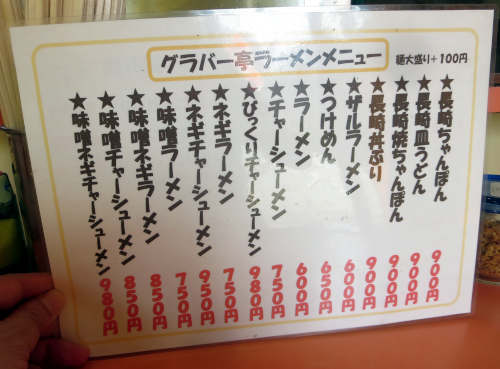 グラバー亭ラーメンメニュー
麺大盛り+100円
★長崎ちゃんぽん 900円
★長崎皿うどん 900円
★長崎焼ちゃんぽん 900円
★長崎丼ぶり 900円
★ザルラーメン 600円
★つけめん 650円
★ラーメン 600円
★チャーシューメン 750円
★びっくりチャーシューメン 980円
★ネギラーメン 750円
★ネギチャーシューメン 950円
★味噌ラーメン 750円
★味噌ネギラーメン 850円
★味噌チャーシューメン 850円
★味噌ネギチャーシューメン 980円